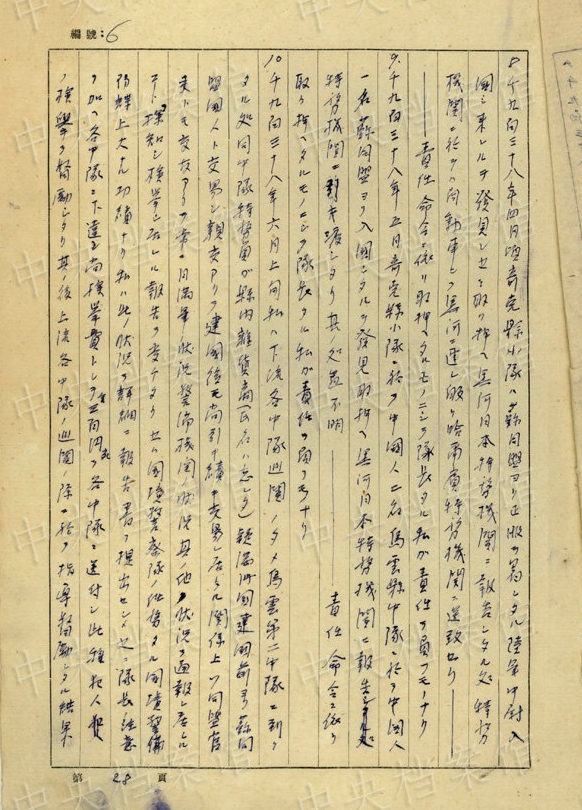 編號：6
8 千九百三十八年四月頃奇克縣小隊ハ蘇同盟ヨリ正服ヲ着シタル陸軍中尉入
國シ来レルヲ發見シセヲ取リ押ヘ黒河日本特務機関ニ報告シタル処特務
機関ニ於テハ自動車ヲ黒河ニ運ビ取リ哈爾賓特務機関ニ送致セリ
責任命令ニ依リ取押ヘタルモノニシテ隊長タル私ガ責任ヲ負フモノナリ
9. 千九百三十八年五月奇克縣小隊ニ於テ中國人二名烏雲縣中隊ニ於テ中國人
一名蘇同盟ヨリ入國シタルヲ發見取押ヘ黒河日本特務機関ニ報告シタル処
特務機関ニ引キ渡シタリ其ノ処置不明 責任命令ニ依リ
取リ押ヘタルモノニシテ隊長タル私ガ責任ヲ負フモノナリ
10 千九百三十八年六月上旬私ハ下流各中隊巡閲ノタメ烏雲第二中隊ニ到リ
タル処同中隊特務員ガ縣内雜貨商（氏名ハ忘レタ）疑滿洲國建國前ヨリ蘇同
盟國人ト交易シ親交アリテ建國後モ尚引キ續キ交易シ居タル関係上ソ同盟官
吏トモ交友アリテ常ニ日滿軍ノ狀況警備機関狀況其ノ他ノ狀況ヲ通報シ居レル
コト探知シ検挙シ居レル報告ヲ受ケタリ セハ國境警察隊ノ任務タル國境警備
防諜上大ナル功績ナリ私ハ此ノ狀況ヲ詳細ニ報告書ヲ提出セシメ之ニ隊長注意
ヲ加ヘ各中隊ニ下達シ尚検挙費トシテ百円ヲ各中隊ニ送付シ此種犯人
ノ検挙ヲ督励シタリ其ノ後上流各中隊ノ巡閲ノ際ニ於テ指導督励シタル結果
第 28 頁